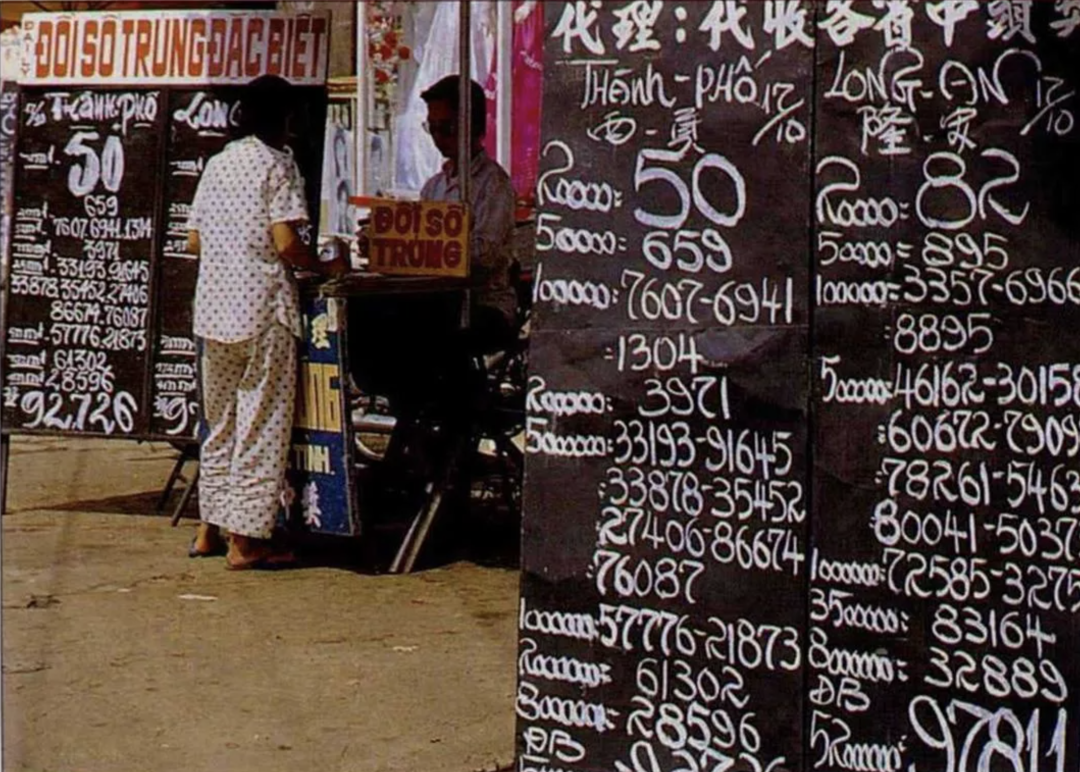 ĐỔI SỐ TRÚNG ĐẶC BIỆT
Thành phố
50
659
7607.6941.1304
3971
33193.91645
33878.35452.27406
86674.76087
57776.21873
61302
28596
92.726
LONG
ĐỔI SỐ
TRÚNG
代理:代收各省中頭獎
Thành-Phố 17/10
西-貢
20000: 50
50000: 659
100000: 7607-6941
:1304
200000: 3971
500000: 33193-91645
:33878-35452
:27406-86674
:76087
1000000: 57776-21873
2000000: 61302
8000000: 28596
ĐB
92726
LONG-AN 17/10
隆-安
20000: 82
50000= 895
100000= 3357-6966
:8895
500000: 46162-30158
:60672-7909
:78261-5463
:80041-5037
1000000: 72585-3275
3500000: 83164
8000000: 32889
ĐB
52000000: 97811